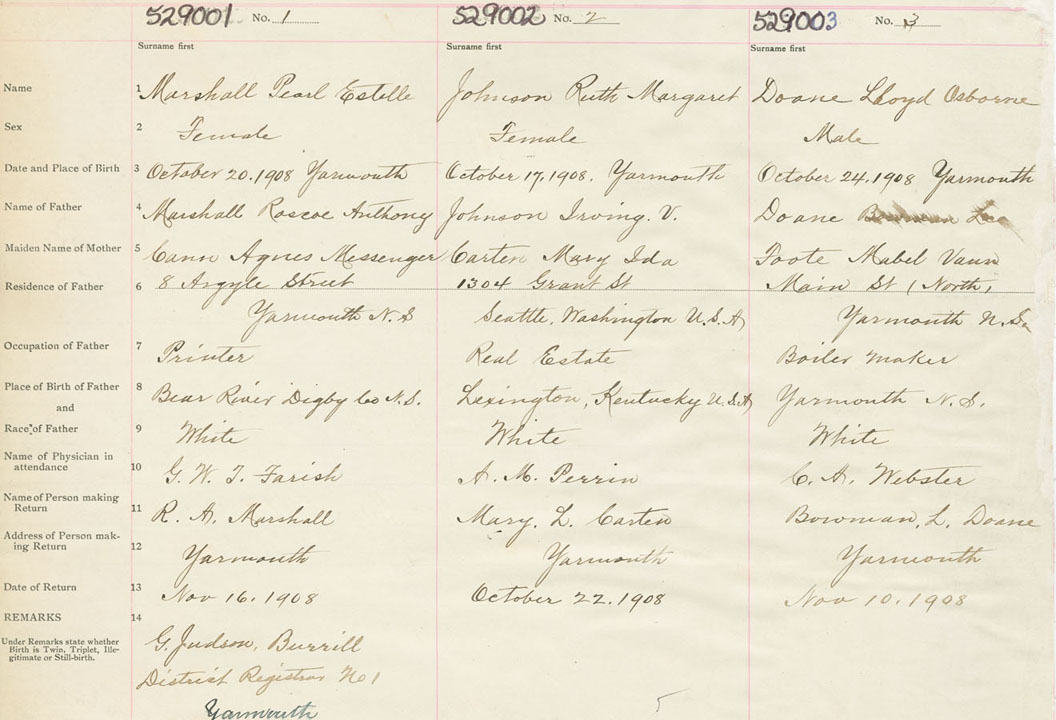 529001 No. 1
529002 No. 2
529003 No. 3
Surname first
Surname first
Surname first
Name 1 Marshall Pearl Estelle
Johnson Ruth Margaret
Doane Lloyd Osborne
Sex 2 Female
Female
Male
Date and Place of Birth 3 October 20. 1908 Yarmouth
October 17, 1908. Yarmouth
October 24. 1908 Yarmouth
Name of Father 4 Marshall Roscoe Anthony
Johnson Irving. V.
Doane
Maiden Name of Mother 5 Cann Agnes Messenger
Carten Mary Ida
Foote Mabel Vaun
Residence of Father 6 8 Argyle Street
1304 Grant St
Main St (North)
Yarmouth N.S
Seattle, Washington U.S.A
Yarmouth N.S.
Occupation of Father 7 Printer
Real Estate
Boiler maker
Place of Birth of Father 8 Bear River Digby Co N.S.
Lexington, Kentucky U.S.A
Yarmouth N.S.
and
Race of Father 9 White
White
White
Name of Physician in
attendance 10 G. W. T. Farish
A. M. Perrin
C. A. Webster
Name of Person making
Return 11 R. A. Marshall
Mary. L. Carten
Bowman. L. Doane
Address of Person mak-
ing Return 12 Yarmouth
Yarmouth
Yarmouth
Date of Return 13 Nov 16. 1908
October 22. 1908
Nov 10. 1908
REMARKS 14
Under Remarks state whether
Birth is Twin, Triplet, Ille-
gitimate or Still-birth.
G. Judson, Burrill
District Registrar No 1
Yarmouth